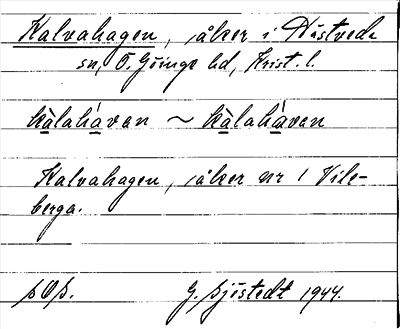 Kalvahagen, åker i Hästveda
sn, Ö. Göinge hd, Krist. l.
kàlahávan ~ kàlahávan
Kalvahagen, åker nr 1 Vile-
berga.
G. Sjöstedt 1944.